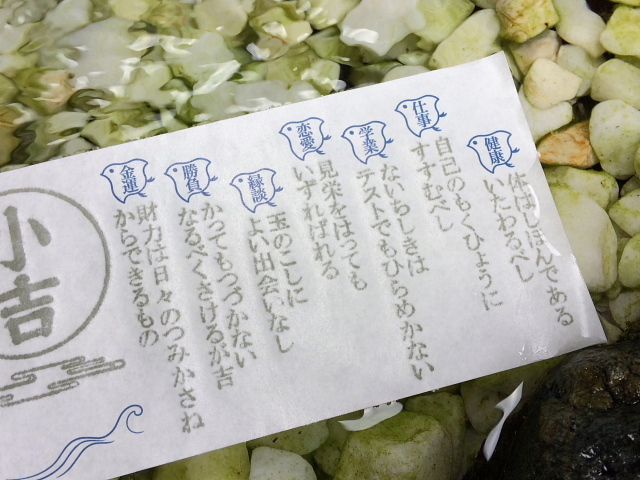 健康
体はしほんである
いたわるべし
仕事
自己のもくひょうに
すすむべし
学業
ないちしきは
テストでもひらめかない
恋愛
見栄をはっても
いずればれる
縁談
玉のこしに
よい出会いなし
勝負
かってもつづかない
なるべくさけるが吉
金運
財力は日々のつみかさね
からできるもの
小吉